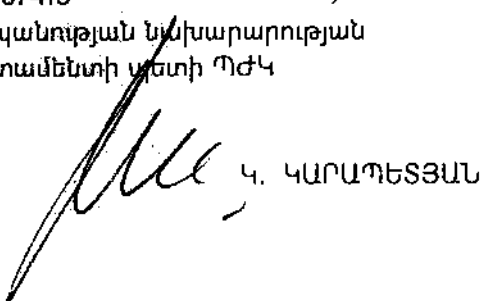 պանության նախարարության
տամենտի պետի ՊԺԿ
Կ. ԿԱՐԱՊԵՏՅԱՆ